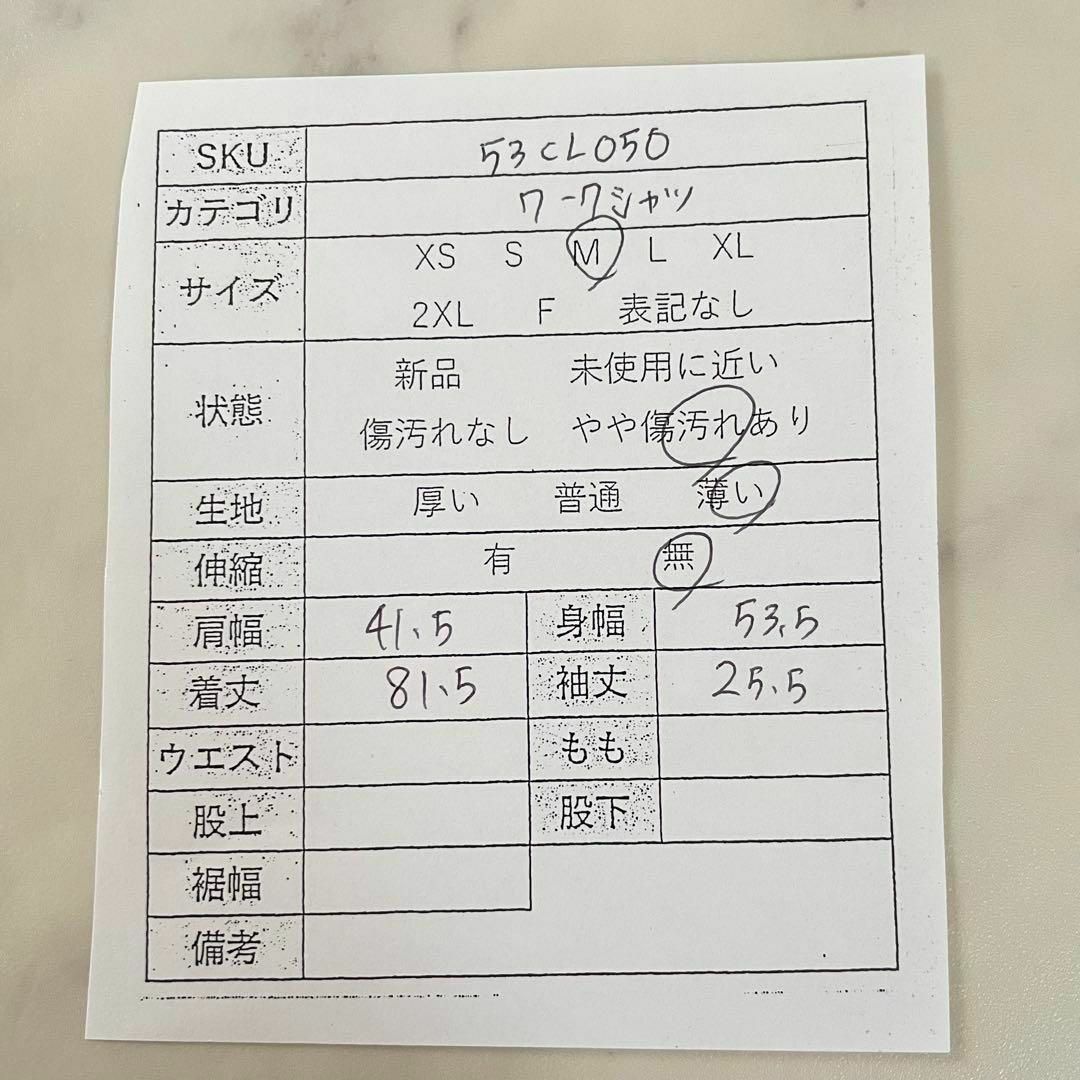 SKU 53CL050
カテゴリ ワークシャツ
サイズ XS S M L XL
2XL F 表記なし
状態 新品 未使用に近い
傷汚れなし やや傷汚れあり
生地 厚い 普通 薄い
伸縮 有 無
肩幅 41.5 身幅 53.5
着丈 81.5 袖丈 25.5
ウエスト もも
股上 股下
裾幅
備考